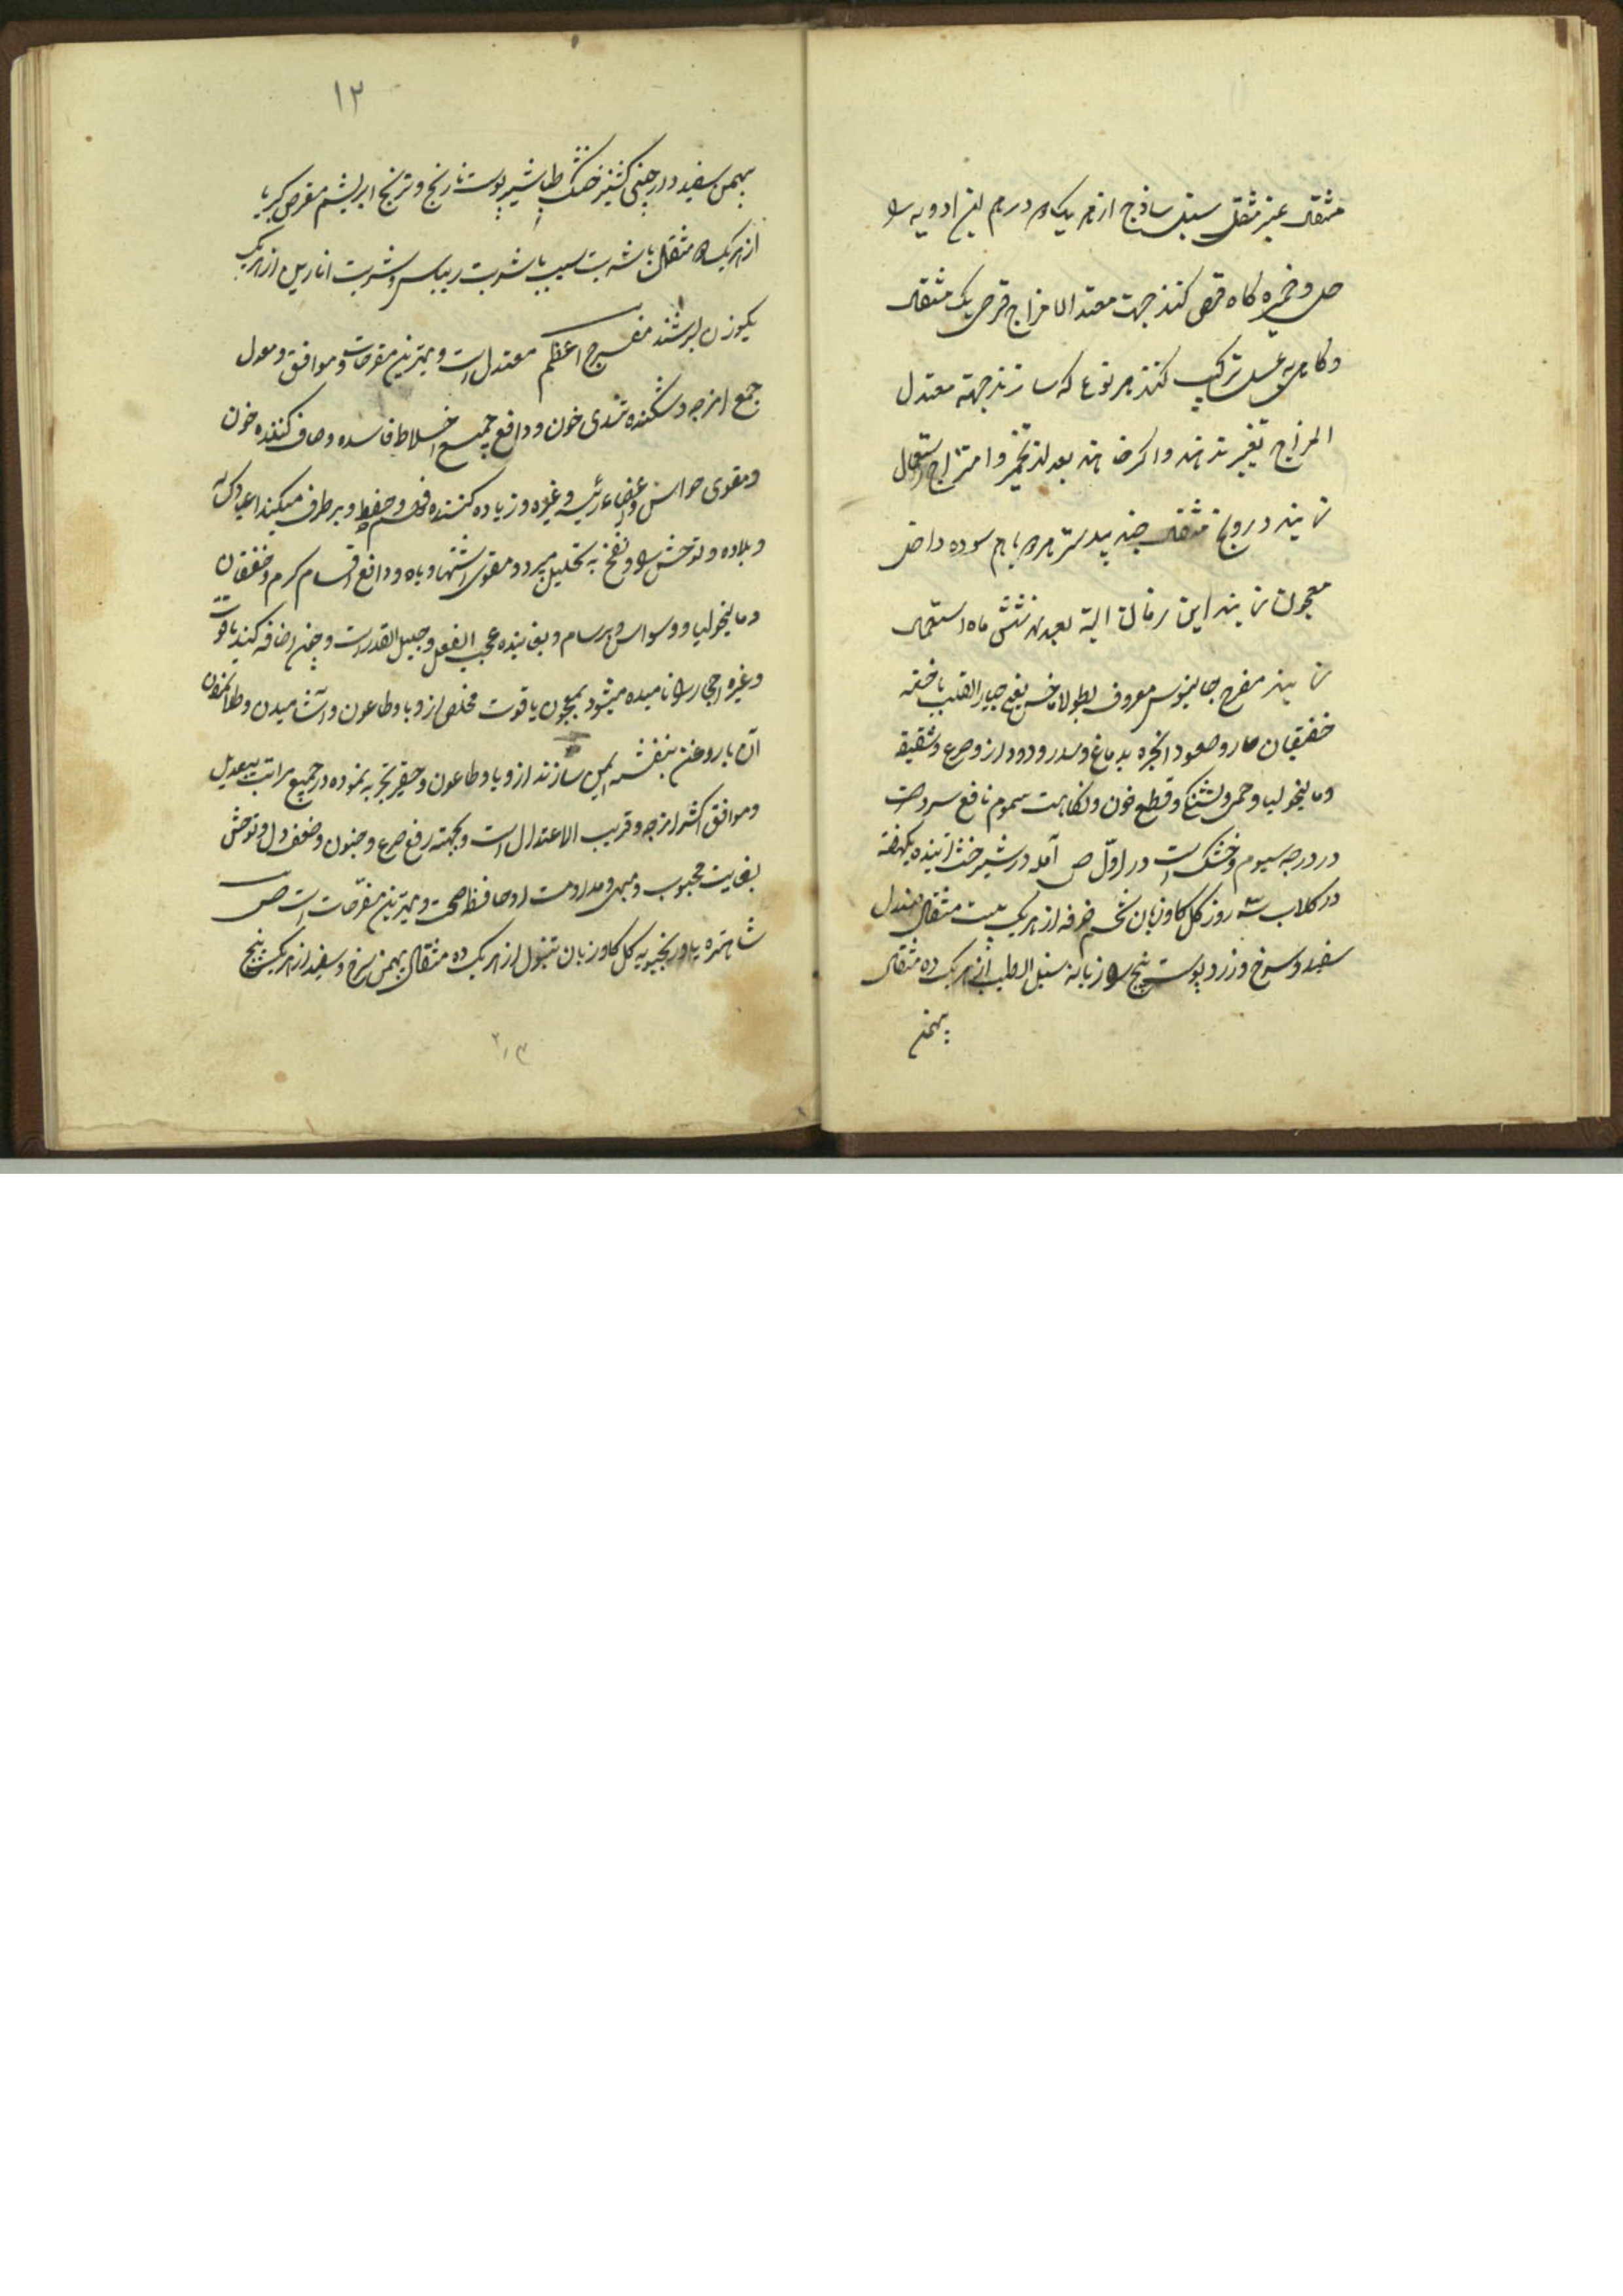 مثقال عنبر مثقال سنبل ساذج از هر یک درهم این ادویه را
حل و خمیره کاه قرص کنند جهت معتدل المزاج قرص یک مثقال
و کاه به عسل ترکیب کنند هر نوع که سازند جهة معتدل
المزاج تغییر ندهند و اکر خواهند بعد از تخمیر و امتزاج استعمال
نمایند درونج مثقال جندبیدستر سوده داخل
معجون نمایند این زمان البته بعد از شش ماه استعمال
نمایند مفرح جالینوس معروف
خفقان حار و صعود ابخره بدماغ و سدر و دوار و صرع و شقیقه
و مالیخولیا و حمی و تشنکی و قطع خون و نکایت سموم نافع سرد است
در درجه سیوم و خشک است در اول ص آمله در شیر خیسانیده یکهفته
در کلاب سه روز کل کاوزبان تخم خرفه از هر یک بیست مثقال صندل
سفید و سرخ و زرد پوست بیخ رازیانه سنبل الطیب از هر یک ده مثقال
بهمن
۱۲
بهمن سفید دارچینی کشنیز خشک طباشیر پوست نارنج و ترنج ابریشم مقرض کهربا
از هر یک ۵ مثقال با شربت سیب یا شربت ریباس و شربت انارین از هر یک
یکوزن بسرشند مفرح اعظم معتدل است و بهترین مفرحات و موافق و معدل
جمیع امزجه و شکننده تندی خون و دافع جمیع اخلاط فاسده و صاف کننده خون
و مقوی حواس و اعضاء رئیسه و غیره و زیاده کننده فهم و حفظ و برطرف میکند اعیا و کسالت
و بلاده و توحش را و نفخ به تحلیل میبرد و مقوی اشتها و باه و دافع اقسام کرم و خفقان
و مالیخولیا و وسواس و برسام و بغایت عجیب الفعل و جلیل القدر است و چون اضافه کنند یاقوت
و غیره احجار را نامیده میشود بمعجون یاقوت مخلص از وبا و طاعون و آشامیدن و طلا نمودن
آن با روغن بنفشه ایمن سازند از وبا و طاعون و حقیر تجربه نموده در جمیع مراتب بیعدیل
و موافق اکثر امزجه و قریب الاعتدال است و بجهته رفع صرع و جنون و ضعف دل و توحش
بغایت محبوب و مبهی و مداومت او حافظ صحت و بهترین مفرحات است ص
شاهتره بادرنجبویه کل کاوزبان تنبول از هر یک ده مثقال بهمن سرخ و سفید از هر یک پنج